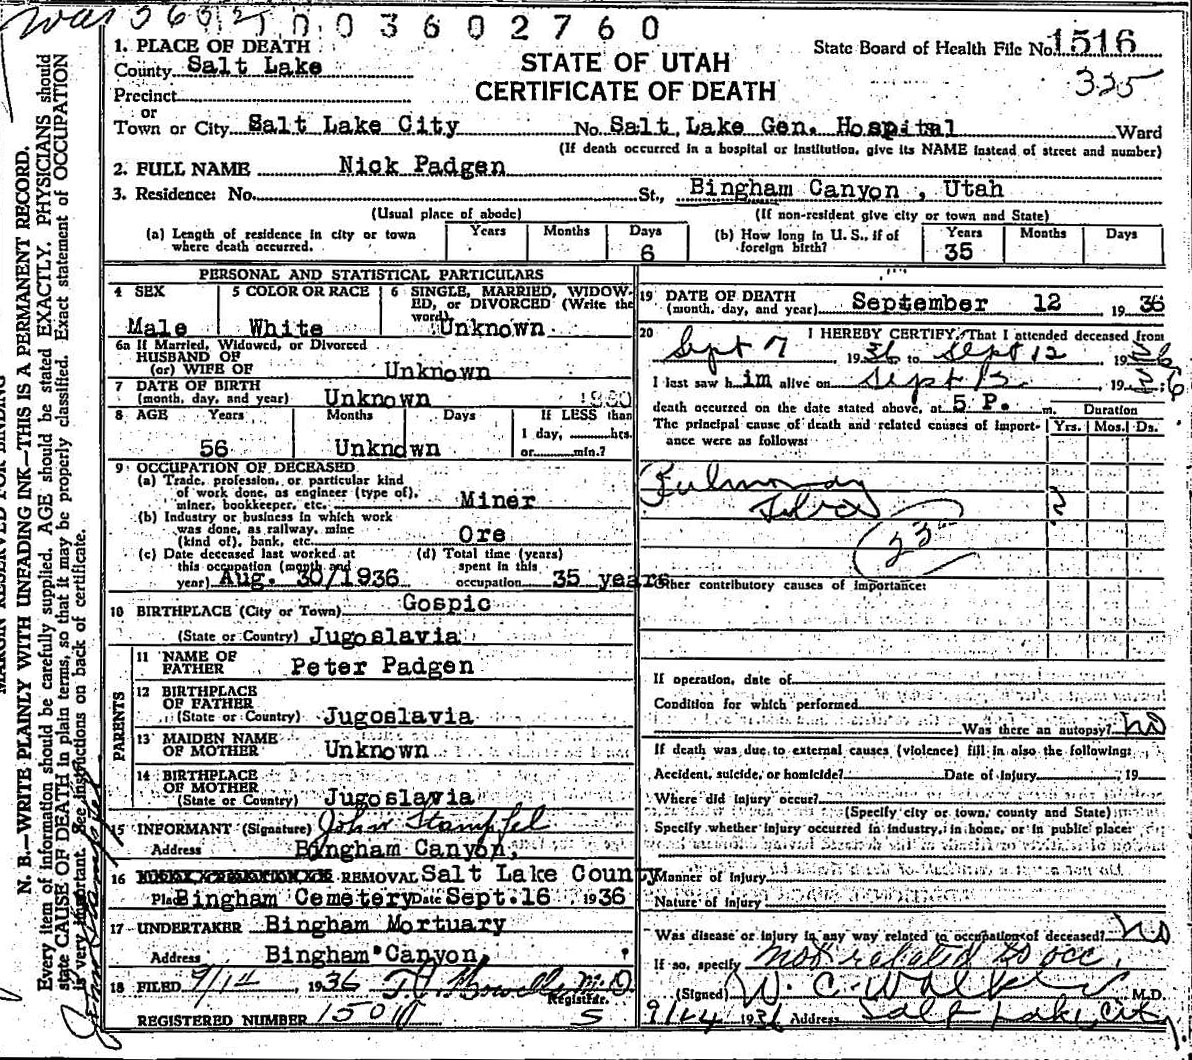 003602760
1. PLACE OF DEATH
STATE OF UTAH
CERTIFICATE OF DEATH
State Board of Health File No. 1516
325
County Salt Lake
Precinct
or
Town or City Salt Lake City No. Salt Lake Gen. Hospital Ward
(If death occurred in a hospital or institution, give its NAME instead of street and number)
2. FULL NAME Nick Padgen
3. Residence: No. St., Bingham Canyon, Utah
(Usual place of abode) (If non-resident give city or town and State)
(a) Length of residence in city or town where death occurred. Years Months Days 6
(b) How long in U. S., if of foreign birth? Years 35 Months Days
PERSONAL AND STATISTICAL PARTICULARS
4 SEX Male
5 COLOR OR RACE White
6 SINGLE, MARRIED, WIDOWED, or DIVORCED (Write the word) Unknown
6a If Married, Widowed, or Divorced
HUSBAND OF
(or) WIFE OF Unknown
7 DATE OF BIRTH
(month, day, and year) Unknown
8 AGE Years 56 Months Unknown Days If LESS than
1 day, hrs.
or min.?
9 OCCUPATION OF DECEASED
(a) Trade, profession, or particular kind
of work done, as engineer (type of),
miner, bookkeeper, etc. Miner
(b) Industry or business in which work
was done, as railway, mine
(kind of), bank, etc. Ore
(c) Date deceased last worked at
this occupation (month and
year) Aug. 30/1936
(d) Total time (years)
spent in this
occupation 35 years
10 BIRTHPLACE (City or Town) Gospic
(State or Country) Jugoslavia
PARENTS
11 NAME OF
FATHER Peter Padgen
12 BIRTHPLACE
OF FATHER
(State or Country) Jugoslavia
13 MAIDEN NAME
OF MOTHER Unknown
14 BIRTHPLACE
OF MOTHER
(State or Country) Jugoslavia
15 INFORMANT (Signature) John Stampfel
Address Bingham Canyon,
16 REMOVAL Salt Lake County
Place Bingham Cemetery Date Sept. 16 1936
17 UNDERTAKER Bingham Mortuary
Address Bingham Canyon,
18 FILED 9/14, 1936 M.D.
Registrar.
REGISTERED NUMBER 1501
19 DATE OF DEATH
(month, day, and year) September 12 1936
20 I HEREBY CERTIFY, That I attended deceased from
Sept 7, 1936 to Sept 12, 1936
I last saw him alive on Sept 12, 1936
death occurred on the date stated above, at 5 P. m.
The principal cause of death and related causes of importance were as follows:
Duration
Yrs. Mos. Ds.
Pulmonary
?
23
Other contributory causes of importance:
If operation, date of
Condition for which performed
Was there an autopsy? No
If death was due to external causes (violence) fill in also the following:
Accident, suicide, or homicide? Date of injury , 19
Where did injury occur?
(Specify city or town, county and State)
Specify whether injury occurred in industry, in home, or in public place:
Manner of Injury
Nature of Injury
Was disease or injury in any way related to occupation of deceased? No
If so, specify not related to occ.
(Signed) W. C. Walker M.D.
9/14 1936 Address Salt Lake City
MARGIN RESERVED FOR BINDING
N. B.—WRITE PLAINLY WITH UNFADING INK—THIS IS A PERMANENT RECORD.
Every item of information should be carefully supplied. AGE should be stated EXACTLY. PHYSICIANS should
state CAUSE OF DEATH in plain terms, so that it may be properly classified. Exact statement of OCCUPATION
is very important. See instructions on back of certificate.